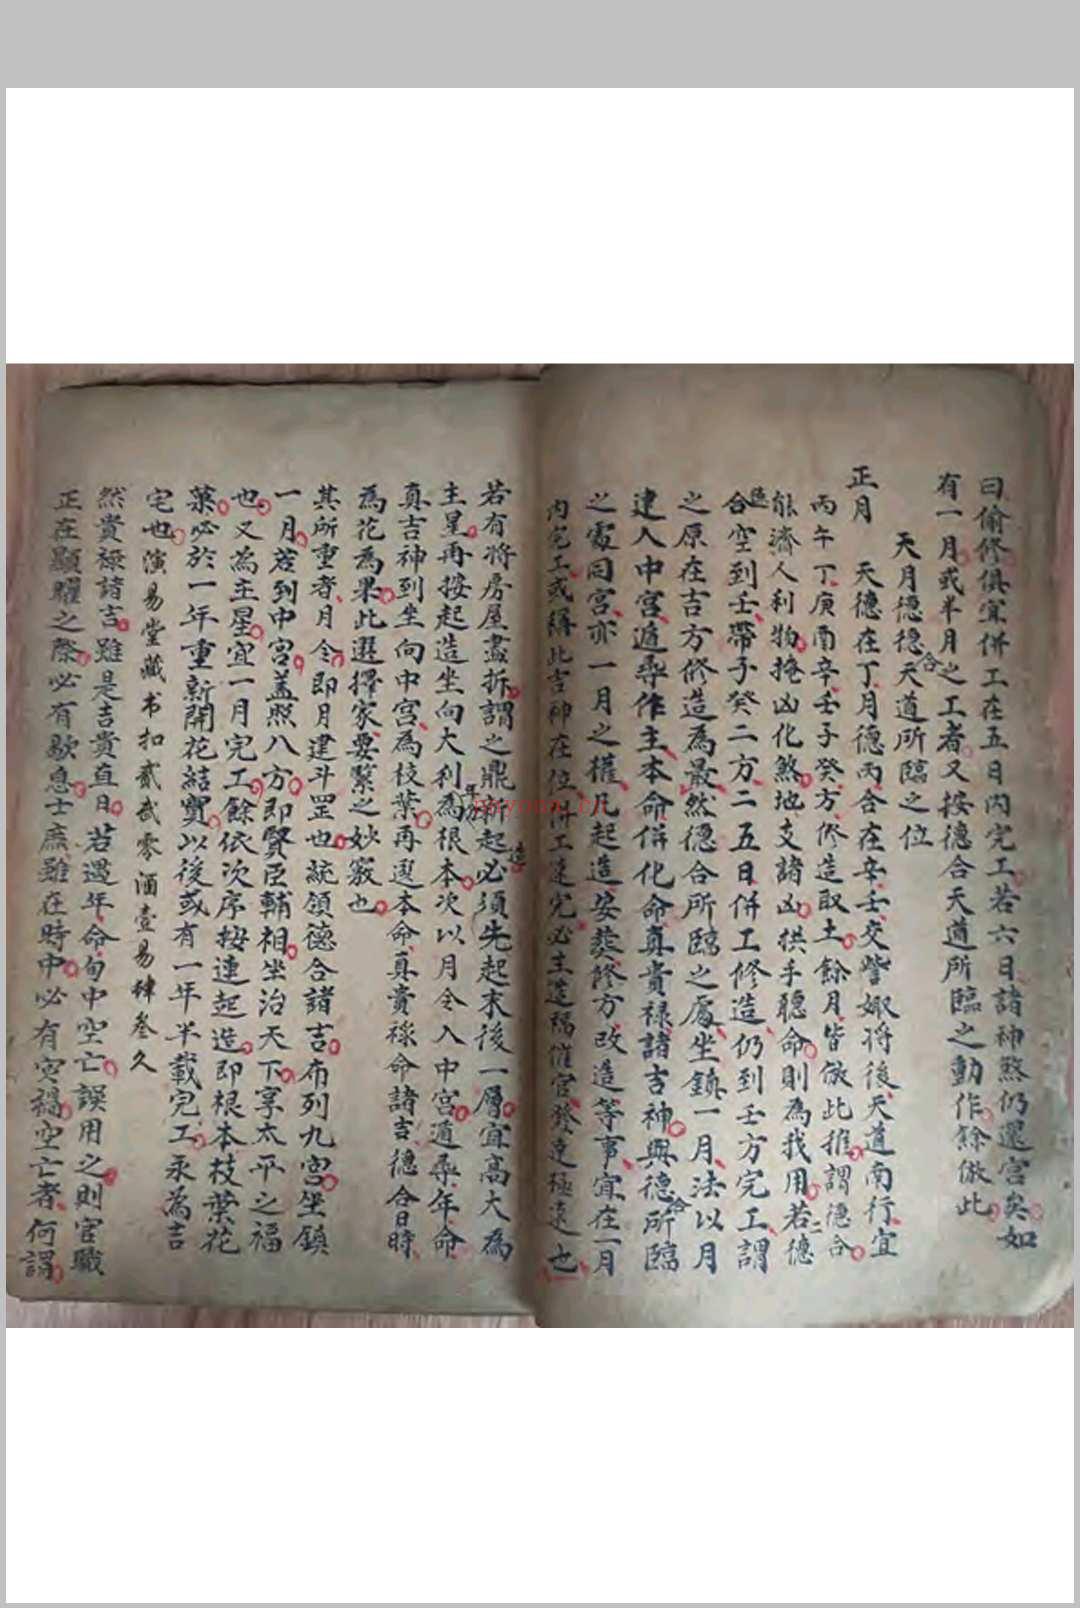 曰偷修俱宜併工在五日内完工若六日諸神煞仍還宮矣如
有一月或半月之工者又按德合天道所臨之動作餘倣此
天月德德合天道所臨之位
正月 天德在丁月德丙合在辛壬交訾娵将後天道南行宜
丙午丁庚酉辛壬子癸方修造取土餘月皆倣此推謂德合
能濟人利物掩凶化煞地支諸凶拱手聽命則為我用若二德
合空到壬帶子癸二方二五日併工修造仍到壬方完工謂
之原在吉方修造為最然德合所臨之處坐鎮一月法以月
建入中宮遁尋作主本命併化命真貴祿諸吉神與德合所臨
之處同宮亦一月之權凡起造安葬修方改造等事宜在一月
内完工或 此吉神在位併工速完必主造福催官發達極速也
若有将房屋盡拆謂之鼎新起造必須先起末後一層宜高大為
主星再按起造坐向大利年方為根本次以月令入中宮遁尋年命
真吉神到坐向中宮為枝葉再選本命真貴祿命諸吉德合日時
為花為果此選擇家要緊之妙竅也
其所重者月令即月建斗罡也統領德合諸吉布列九宮坐鎮
一月若到中宮盖照八方即賢臣輔相坐治天下享太平之福
也又為主星宜一月完工餘依次序按連起造即根本枝葉花
菓必於一年重新開花結實以後或有一年半載完工永為吉
宅也
演易堂藏书扣贰贰零酒壹易肆叁久
然貴祿諸吉雖是吉貴直日若遇年命旬中空亡誤用之則官職
正在顯耀之際必有歇息士庶雖在時中必有灾禍空亡者何謂